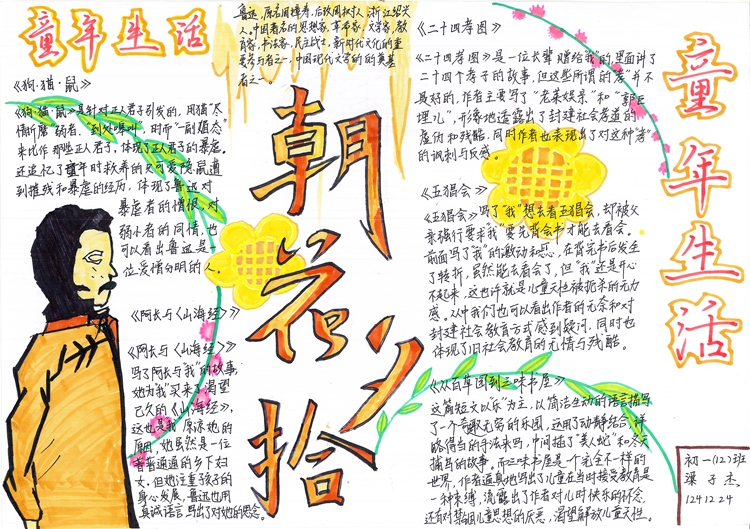 童年生活
鲁迅,原名周樟寿,后改周树人,浙江绍兴
人。中国著名的思想家、革命家、文学家、教
育家、书法家、民主战士,新时代文化的重
要参与者之一,中国现代文学的的奠基
者之一。
《狗·猫·鼠》
《狗·猫·鼠》是针对正人君子引发的,用猫"尽
情折磨"弱者,"到处嗥叫",时而"一副媚态"
来比作那些正人君子,体现了正人君子的暴虐。
还追忆了童年时救养的可爱隐鼠遭
到摧残和暴虐的经历,体现了鲁迅对
暴虐者的憎恨,对
弱小者的同情,也
可以看出鲁迅是一
位爱憎分明的人。
《阿长与《山海经》》
《阿长与《山海经》》
写了阿长与"我"的故事
她为"我"买来了渴望
已久的《山海经》,
这也是"我"原谅她的
原因,她虽然是一位
普普通通的乡下妇
女,但她注重孩子的
身心发展,鲁迅也用
真诚语言写出了对她的思念。
朝花夕拾
《二十四孝图》
《二十四孝图》是一位长辈赠给"我"的,里面讲了
二十四个孝子的故事,但这些所谓的"孝"并不
是好的,作者主要写了"老莱娱亲"和"郭巨
埋儿",形象地透露出了封建社会孝道的
虚伪和残酷,同时作者也表现出了对这种"孝"
的讽刺与反感。
《五猖会》
《五猖会》写了"我"想去看五猖会,却被父
亲强行要求"我"要先背会书才能去看会。
前面写了"我"的激动和
,在背完书后发生
了转折,虽然能去看会了,但"我"还是开心
不起来,这也许就是儿童天性被扼杀的无力
感。从中我们也可以看出作者的无奈和对
封建社会教育方式感到疑问,同时也
体现了旧社会教育的无情与残酷。
《从百草园到三味书屋》
这篇短文以"乐"为主,以简洁生动的语言描写
了一个奇趣无穷的乐园,运用了动静结合,详
略得当的手法来写,中间插了"美人蛇"和冬天
捕鸟的故事,而三味书屋是一个完全不一样的
世界,作者逼真地写出了儿童在当时接受教育是
一种束缚,流露出了作者对儿时快乐的怀念,
还有对禁锢儿童思想的厌恶,渴望解放儿童天性。
童年生活
初一(12)班
梁子杰
1241224